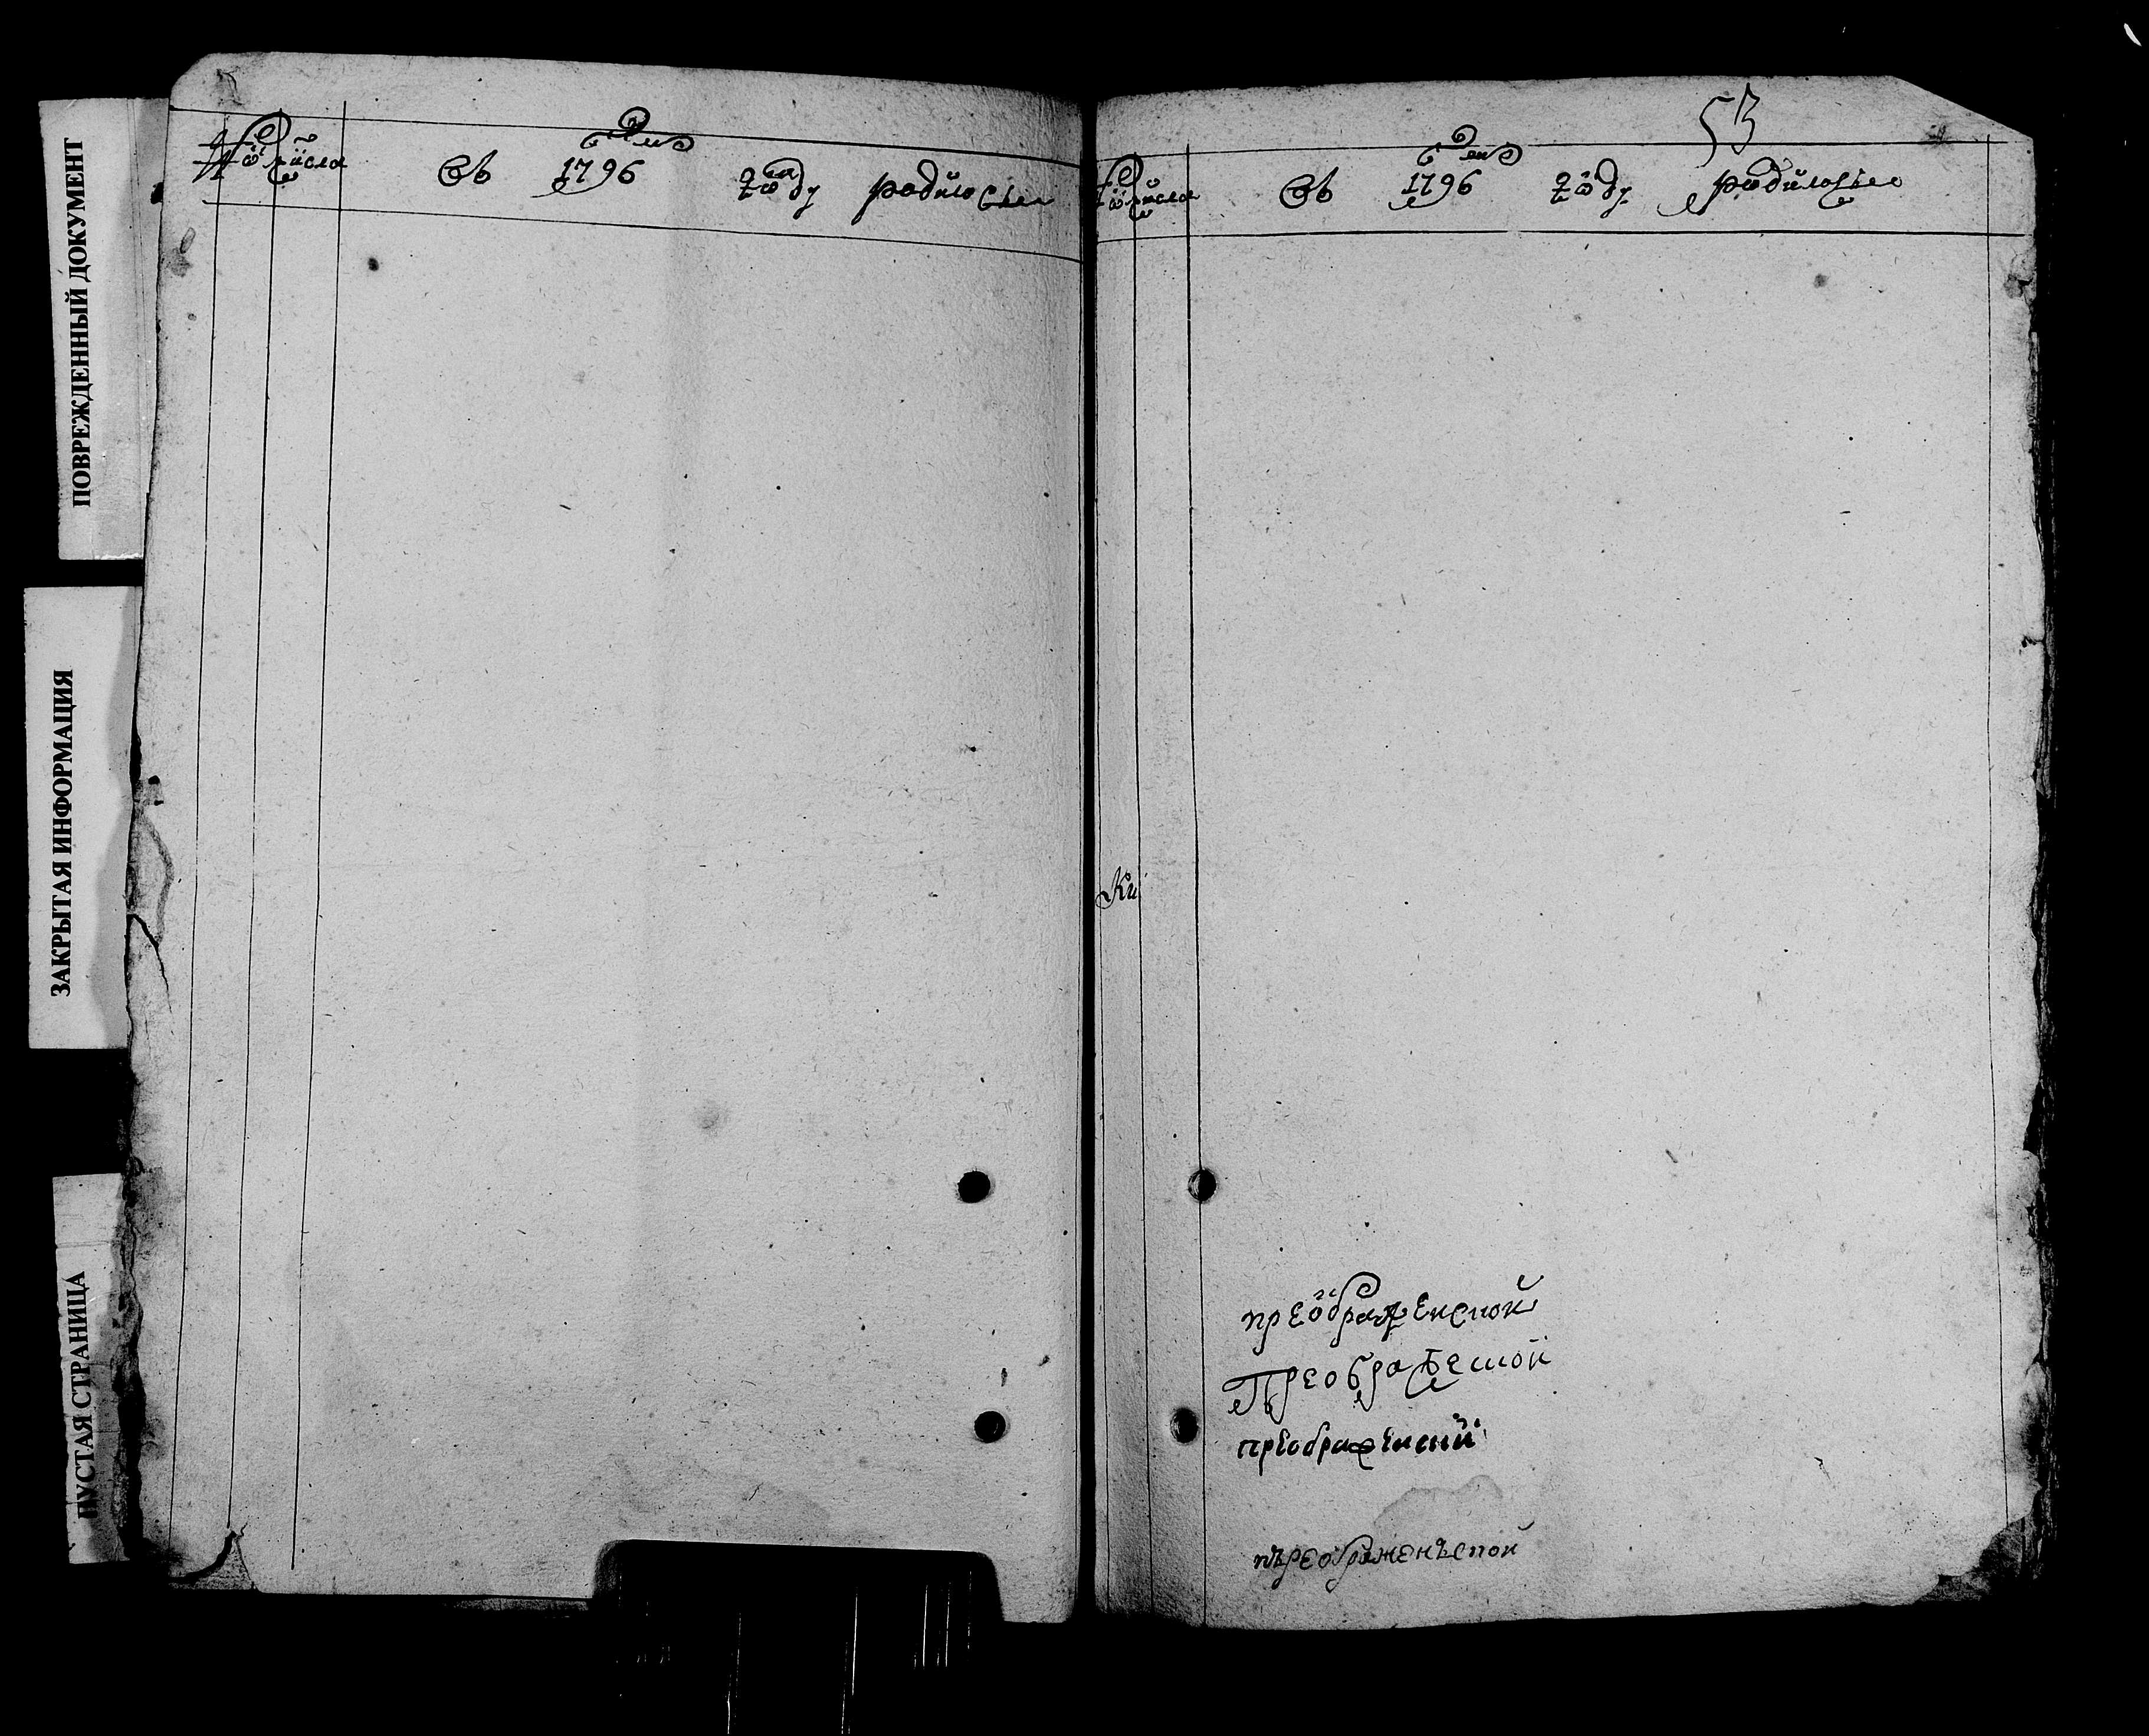 ПОВРЕЖДЕННЫЙ ДОКУМЕНТ
ЗАКРЫТАЯ ИНФОРМАЦИЯ
ПУСТАЯ СТРАНИЦА
числа Въ 1796 году родилось
53
числа Въ 1796 году родилось
Ки
преображенской
Преображеской
преображенский
пъреображенъской